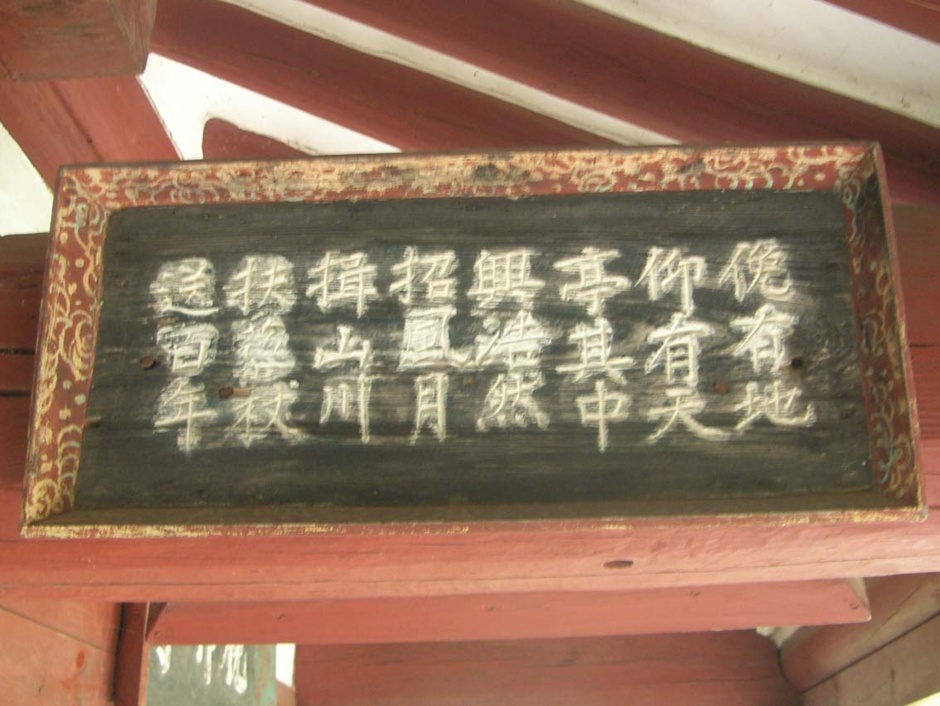 俛有地
仰有天
亭其中
興浩然
招風月
揖山川
扶藜杖
送百年